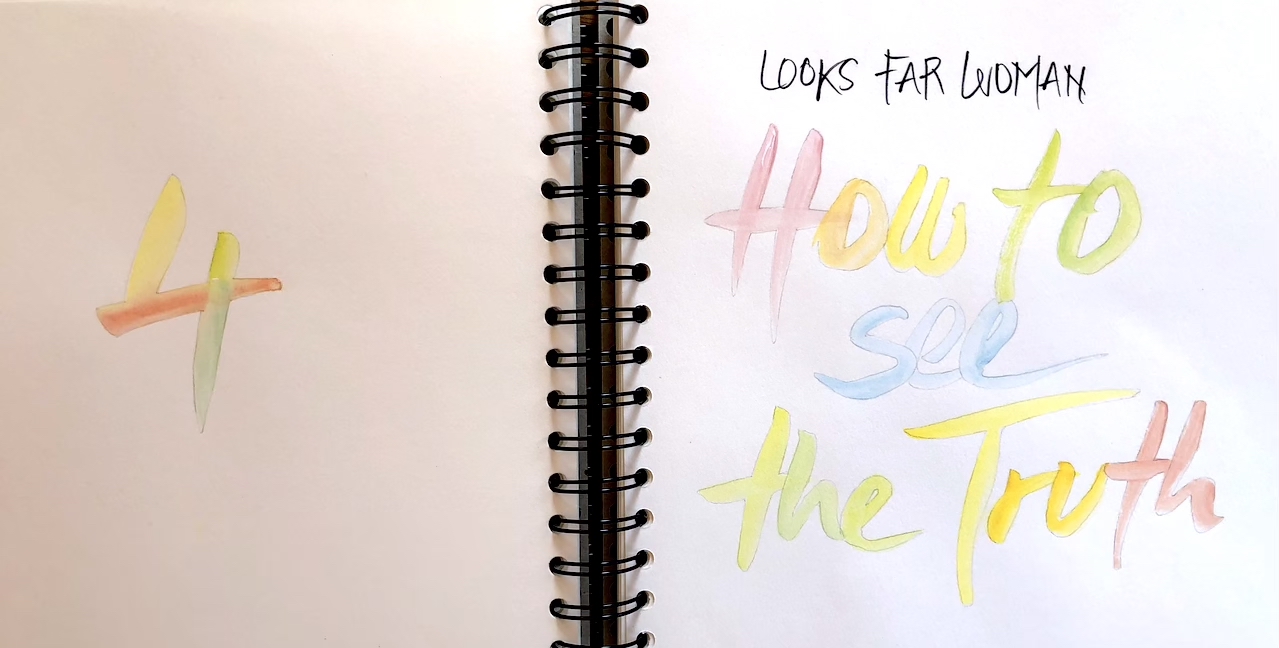 4
LOOKS FAR WOMAN
How to
see
the Truth